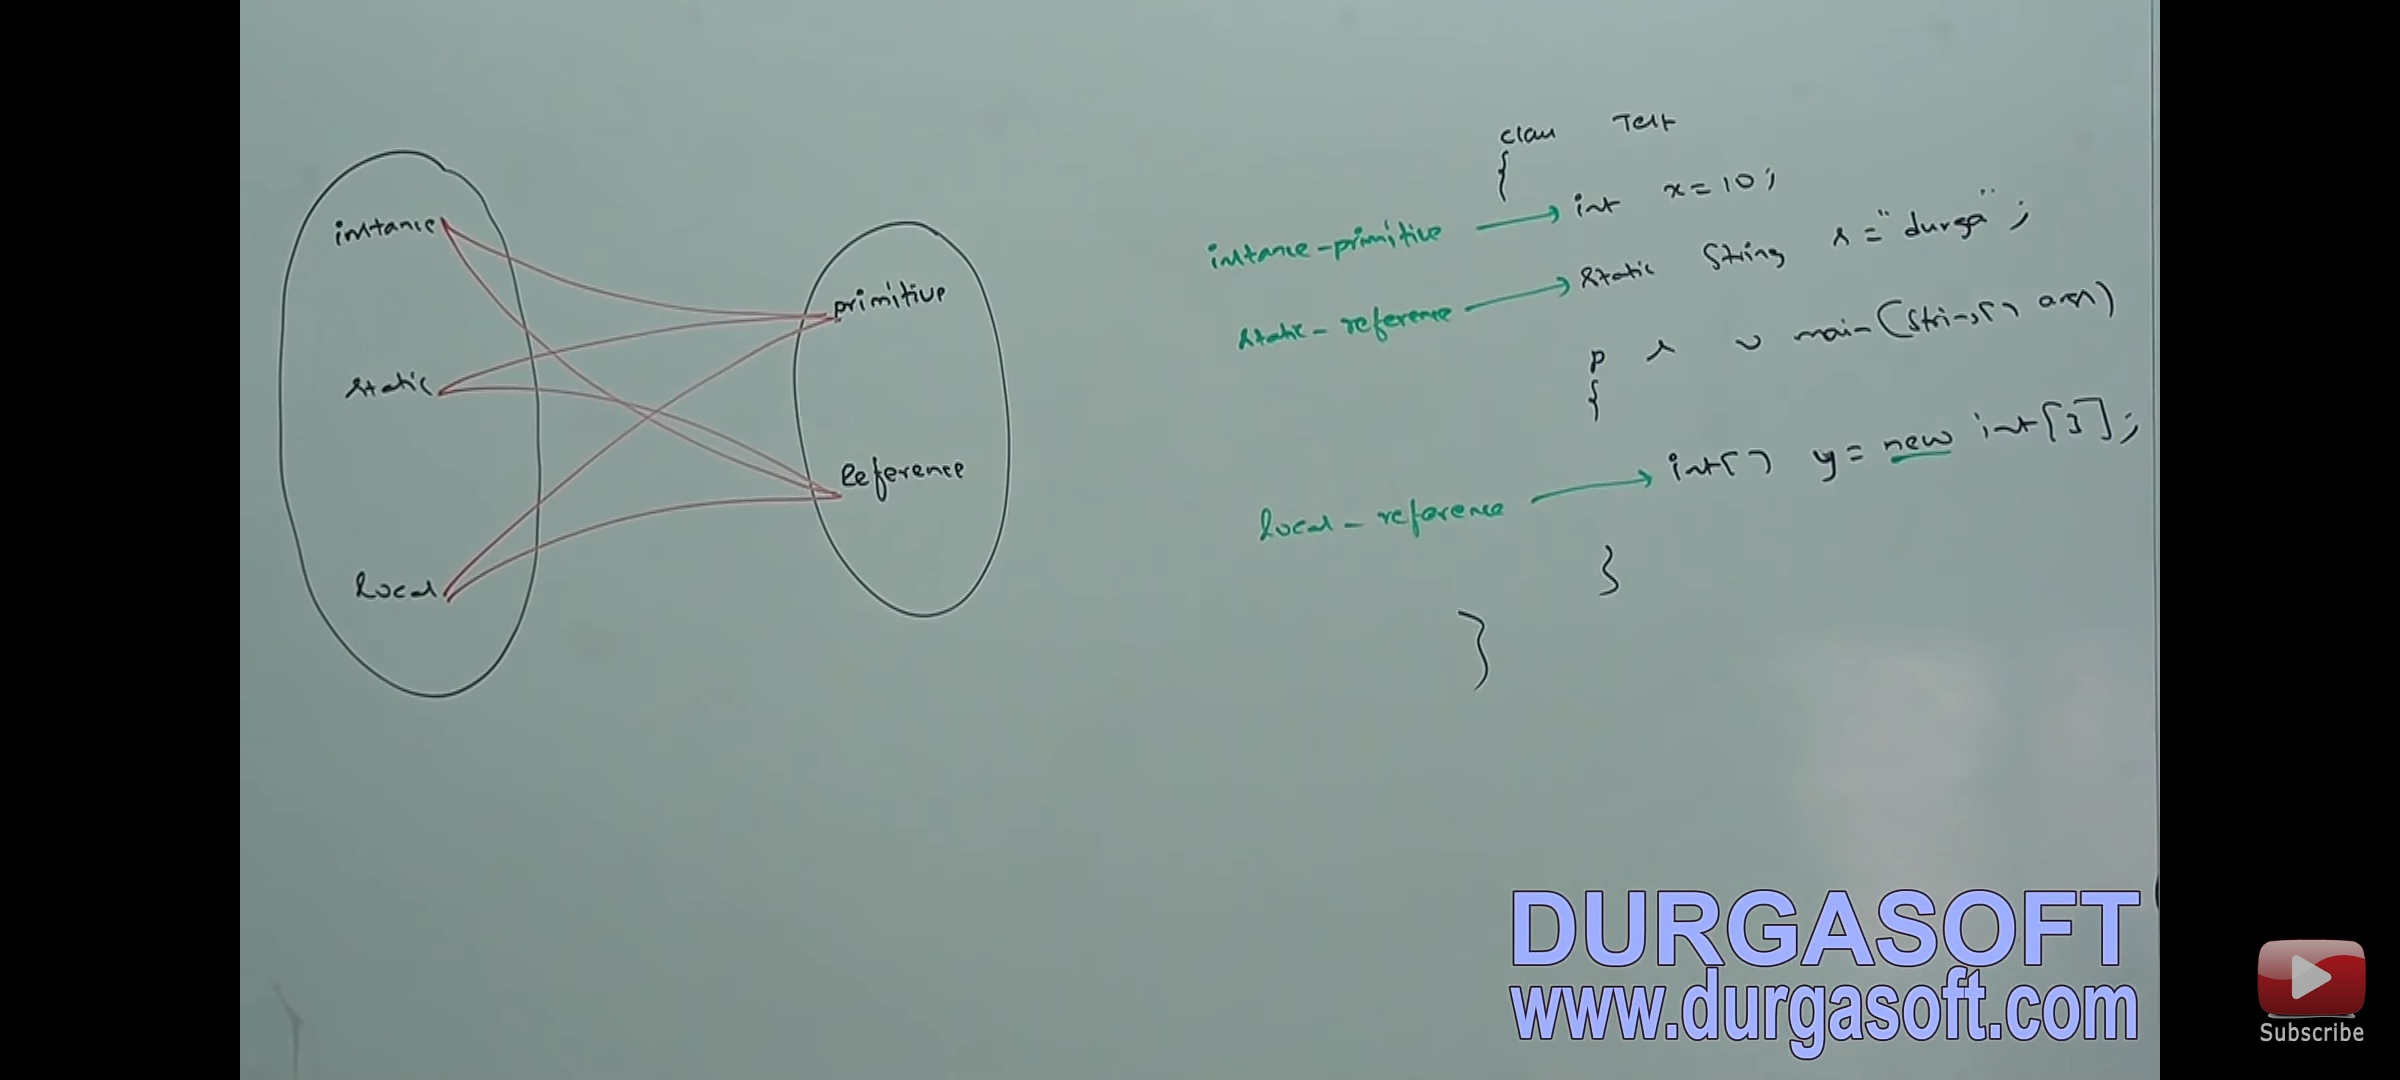 instance
static
local
primitive
Reference
class Test
{
instance-primitive → int x=10;
static-reference → static String s="durga";
p s v main(String[] args)
{
local-reference → int[] y = new int[3];
}
}
DURGASOFT
www.durgasoft.com
Subscribe